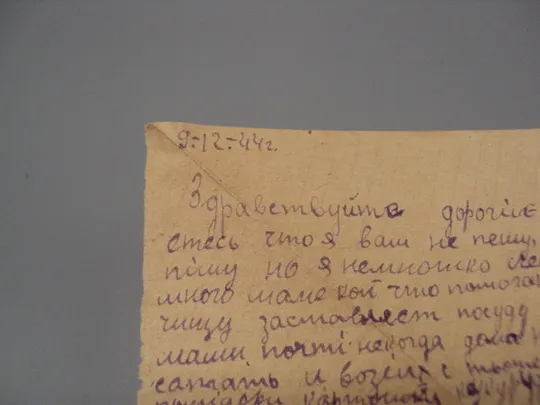 9-12-44г.
Здравствуйте дорогие
етесь что я вам не пешу.
пішу но я немношко
много маме кой что помога
чищу заставляет посуду
мами почті некогда дома
и возей с